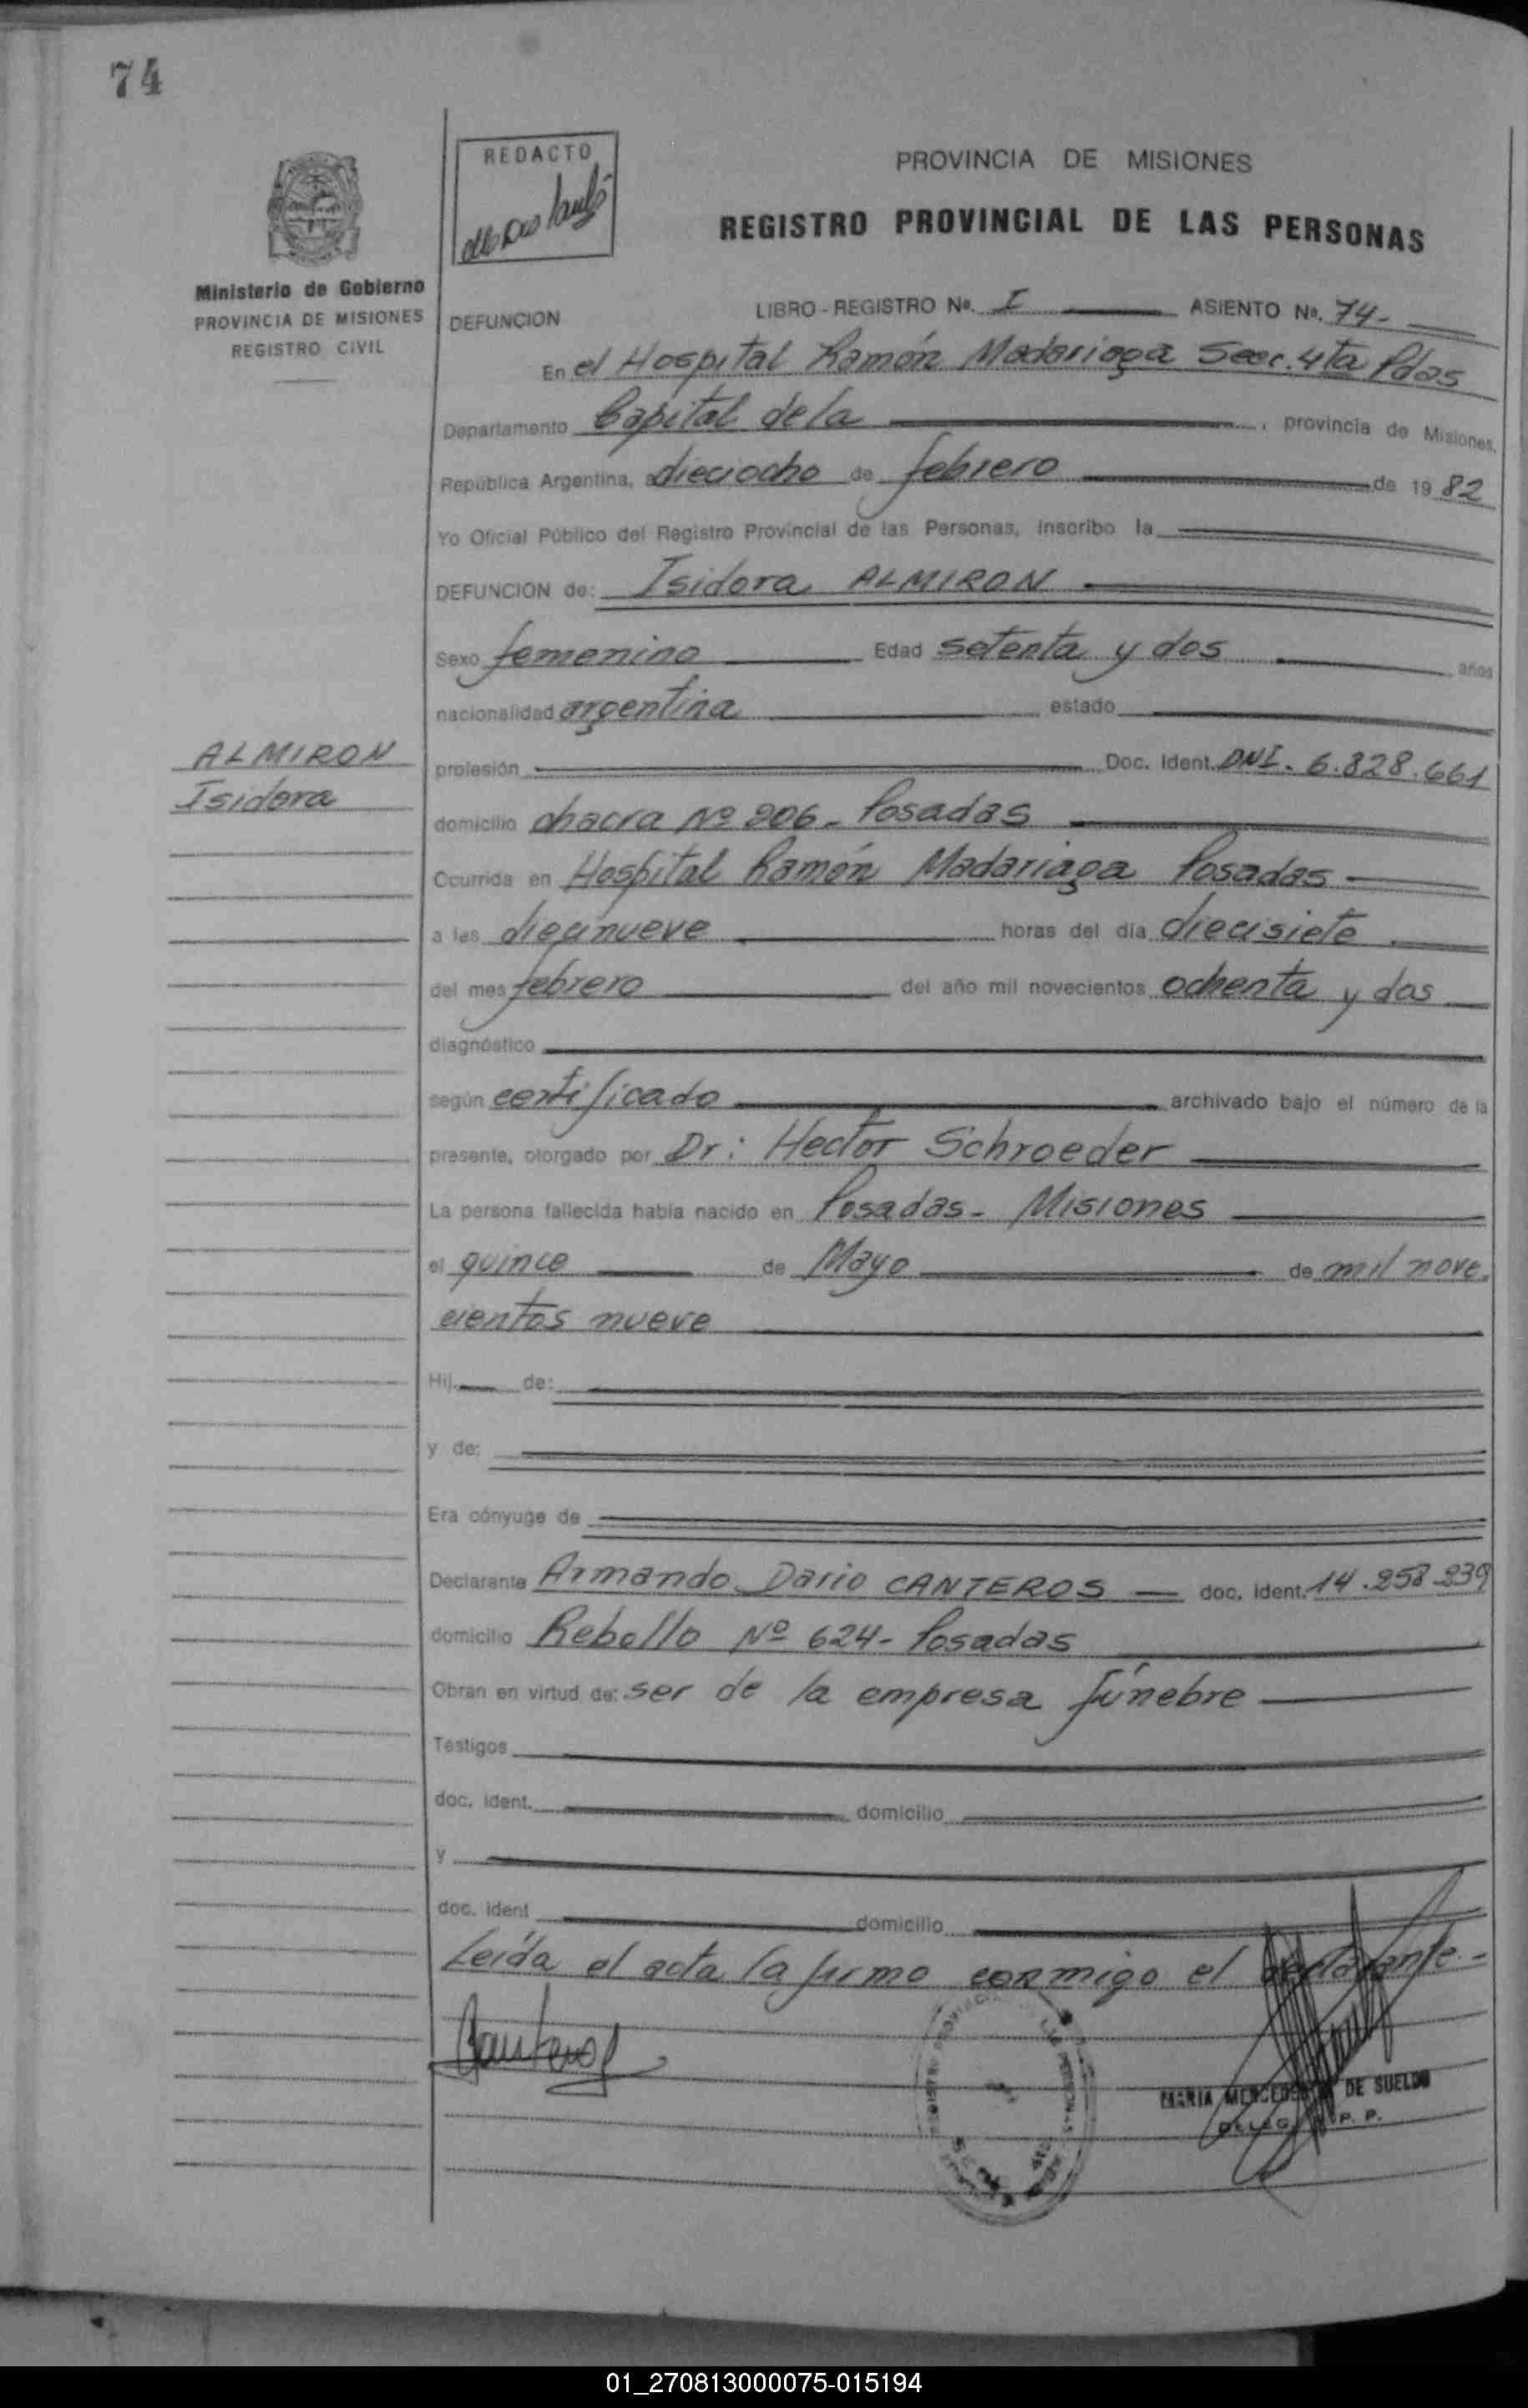 74
REDACTO
PROVINCIA DE MISIONES
REGISTRO PROVINCIAL DE LAS PERSONAS
Ministerio de Gobierno
PROVINCIA DE MISIONES
REGISTRO CIVIL
DEFUNCION LIBRO - REGISTRO No. I ASIENTO No. 74-
En el Hospital Ramón Madariaga Secc. 4ta Pdas
Departamento Capital de la , provincia de Misiones,
República Argentina, a dieciocho de febrero de 19 82
Yo Oficial Público del Registro Provincial de las Personas, inscribo la
DEFUNCION de: Isidora ALMIRON
Sexo femenino Edad setenta y dos años
nacionalidad argentina estado
ALMIRON
Isidora
profesión Doc. Ident. DNI. 6.828.661
domicilio chacra Nº 206- Posadas
Ocurrida en Hospital Ramón Madariaga Posadas
a las diecinueve horas del día diecisiete
del mes febrero del año mil novecientos ochenta y dos
diagnóstico
según certificado archivado bajo el número de la
presente, otorgado por Dr: Hector Schroeder
La persona fallecida había nacido en Posadas- Misiones
el quince de Mayo de mil nove
cientos nueve
Hij de:
y de:
Era cónyuge de
Declarante Armando Dario CANTEROS doc. ident. 14.258.239
domicilio Rebollo Nº 624- Posadas
Obran en virtud de: ser de la empresa fúnebre
Testigos
doc. ident. domicilio
y
doc. ident domicilio
Leída el acta la firmo conmigo el declarante.-
Canteros
MARIA MERCEDES DE SUELDO
P. P.
01_270813000075-015194